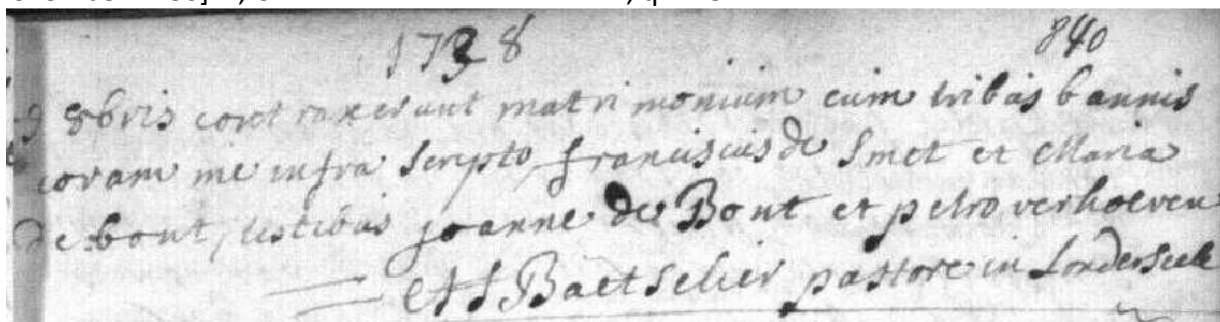 1738 840
9 8bris contraxerunt matrimonium cum tribus bannis
coram me infra scripto, franciscus de Smet et Maria
de bont, testibus joanne de Bont et petro verhoeven
Baetselier pastore in Londerseele